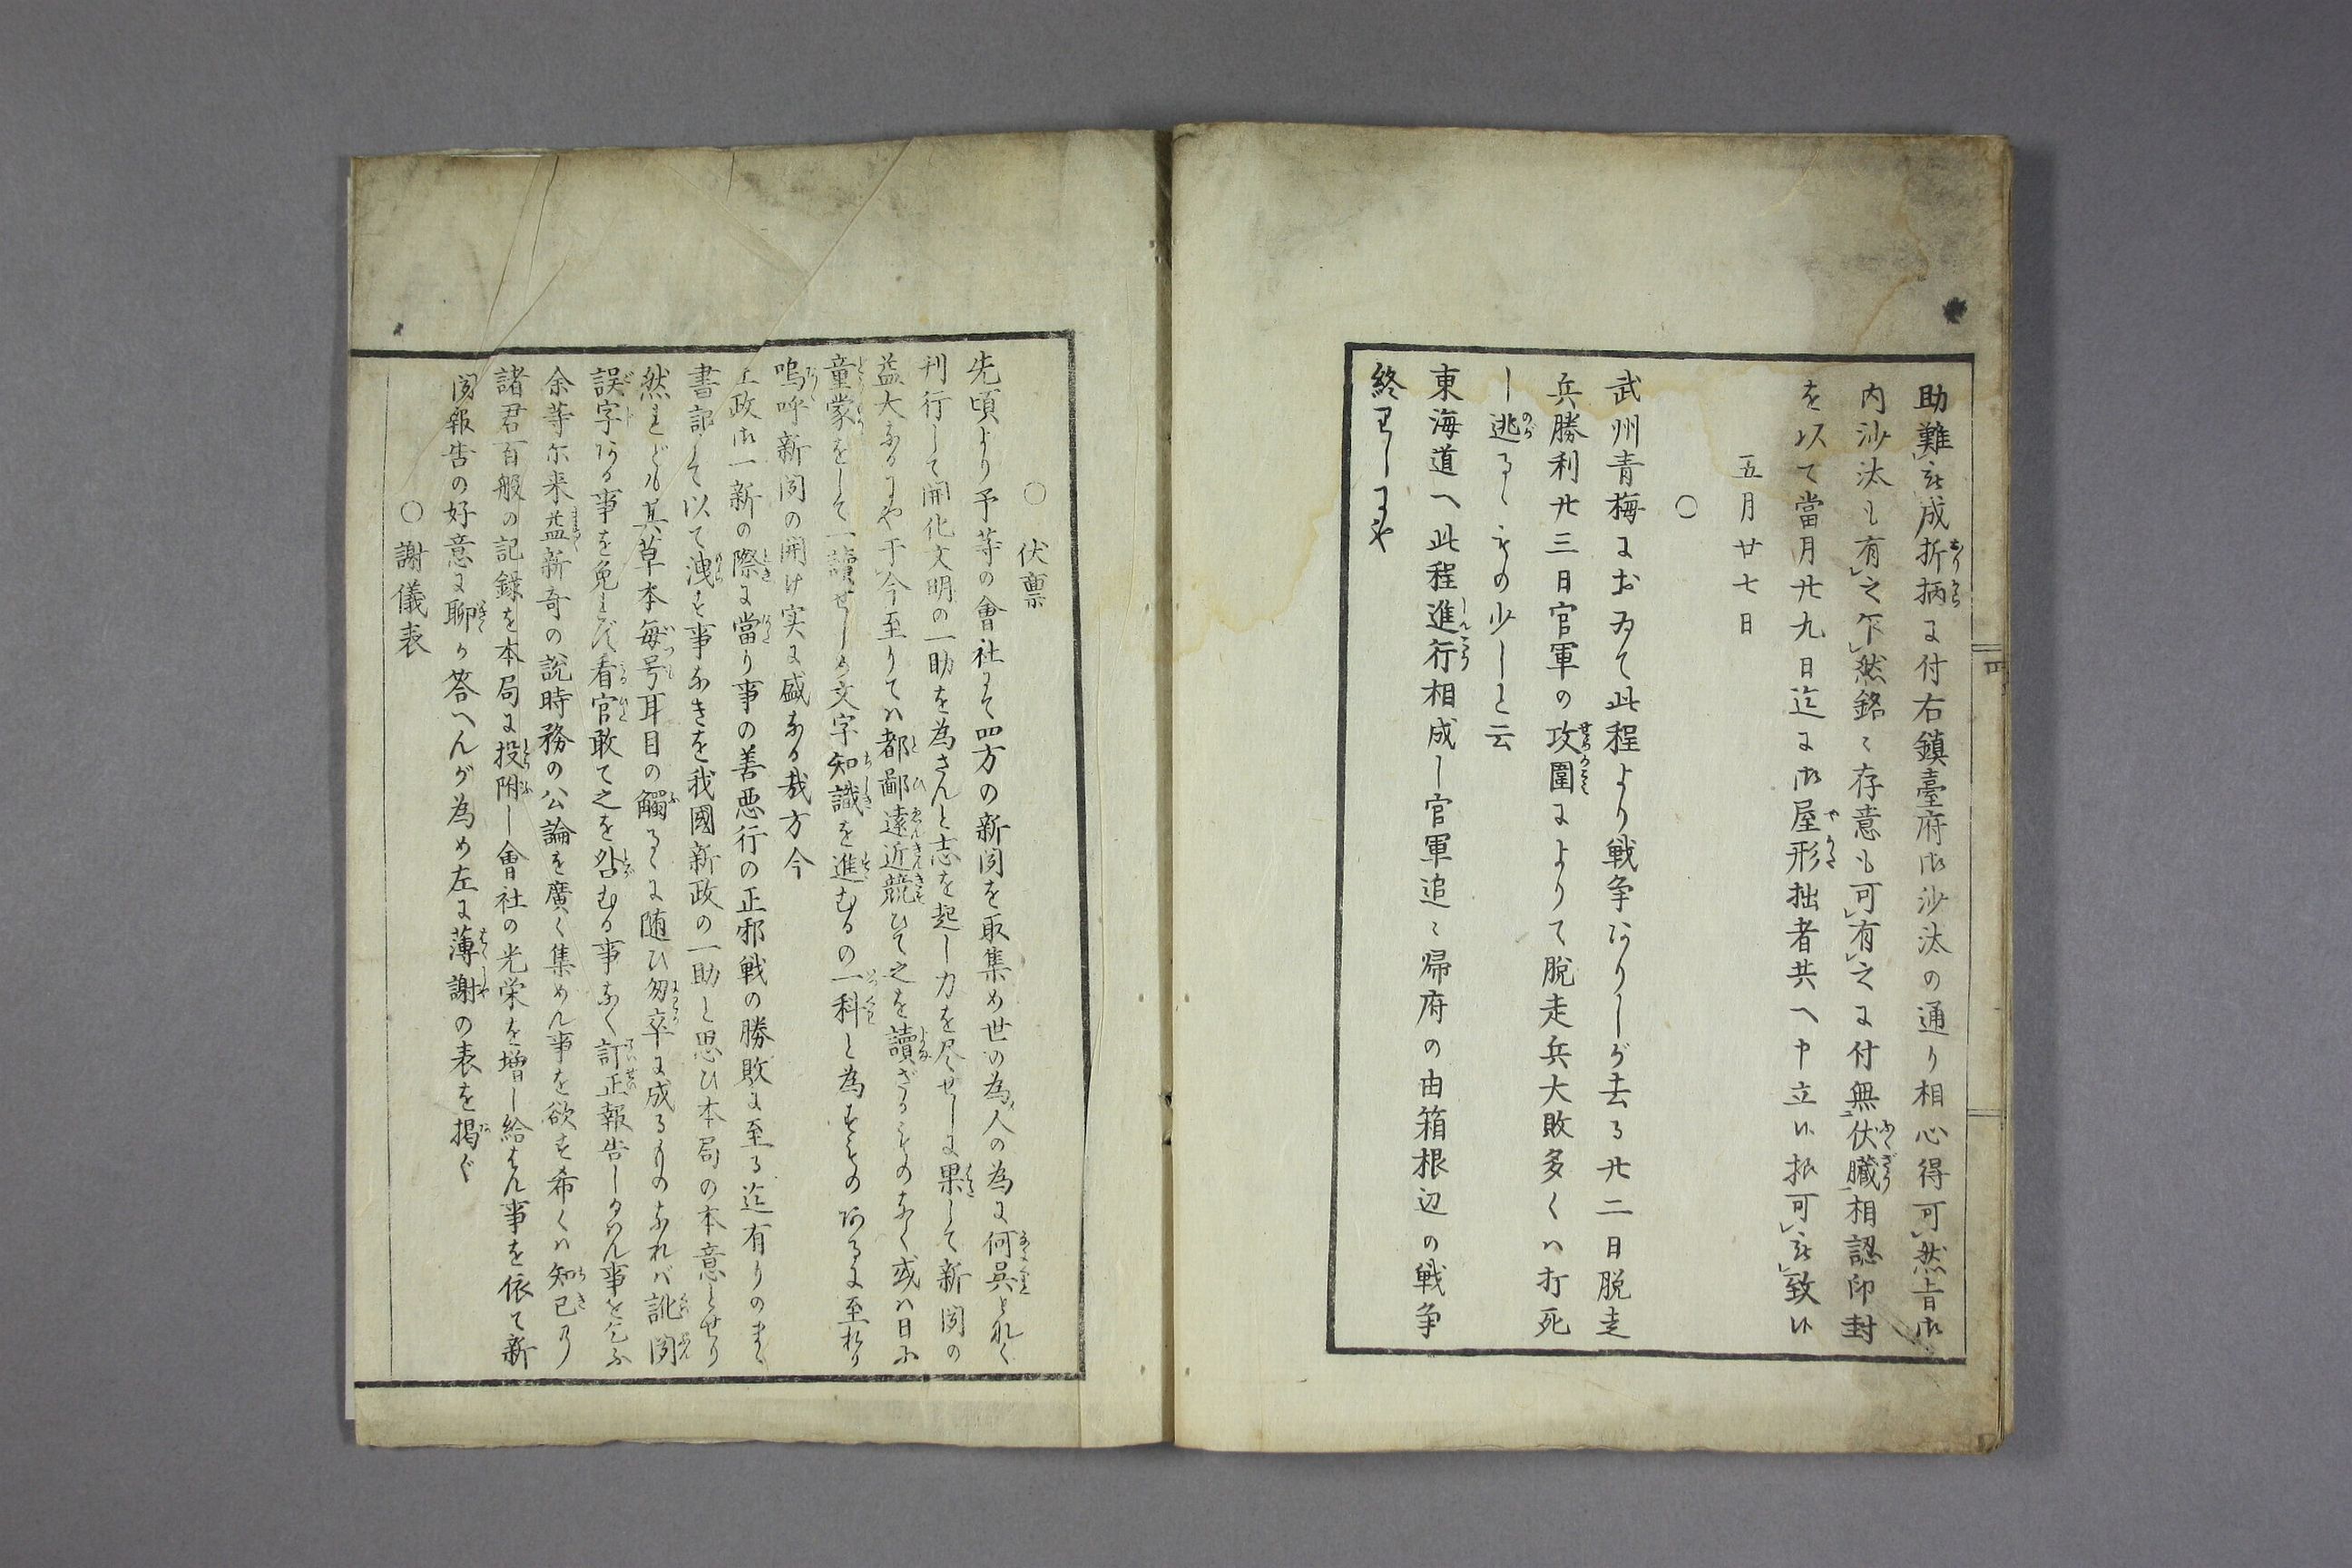 助難被成折柄に付右鎮臺府御沙汰の通り相心得可然旨御
内沙汰も有之乍然銘々存意も可有之に付無伏臓相認印封
を以て當月廿九日迄に御屋形拙者共へ申立候様可被致候
五月廿七日
〇
武州青梅におゐて此程より戦争ありしが去る廿二日脱走
兵勝利廿三日官軍の攻圍によりて脱走兵大敗多くハ打死
し逃るゝもの少しと云
東海道へ此程進行相成し官軍追々帰府の由箱根辺の戦争
終りしにや
四
〇 伏稟
先頃より予等の會社にて四方の新聞を取集め世の為人の為に何呉となく
刊行して開化文明の一助を為さんと志を起し力を尽せしに果して新聞の
益大なるにや于今至りてハ都鄙遠近競ひて之を讀ざるものなく或ハ日ふ
童蒙をして一讀せしめ文字知識を進むるの一科と為すものあるに至れり
嗚呼新聞の開け実に盛なる哉方今
王政御一新の際に當り事の善悪行の正邪戦の勝敗に至る迄有りのまゝ
書記して以て洩す事なきを我國新政の一助と思ひ本局の本意とせり
然れども其草本毎号耳目の觸るゝに随ひ匆卒に成るものなれバ訛聞
誤字ある事を免れず看官敢て之を咎むる事なく訂正報告し給ハん事を乞ふ
余等尓来益新奇の説時務の公論を廣く集めん事を欲す希くハ知己の
諸君百般の記録を本局に投附し會社の光栄を増し給はん事を依て新
聞報告の好意に聊か答へんが為め左に薄謝の表を掲ぐ
〇 謝儀表